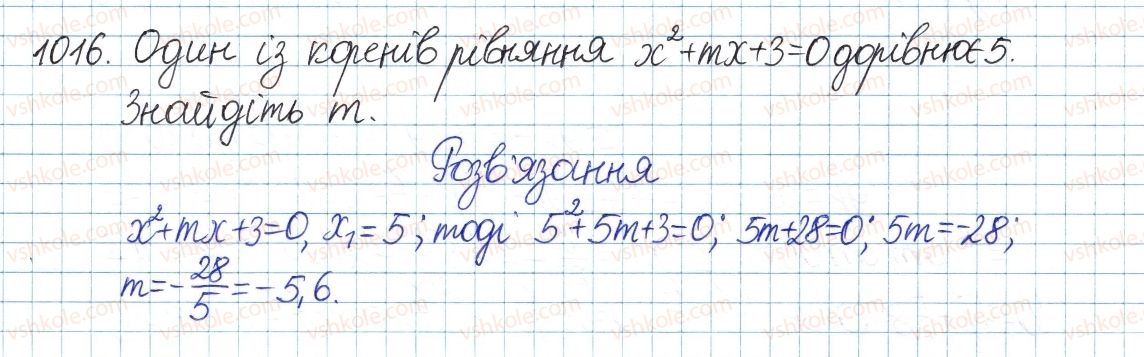 1016. Один із коренів рівняння x²+mx+3=0 дорівнює 5.
Знайдіть m.
Розв'язання
x²+mx+3=0, x₁=5; тоді 5²+5m+3=0; 5m+28=0; 5m=-28;
m=-28/5=-5,6.